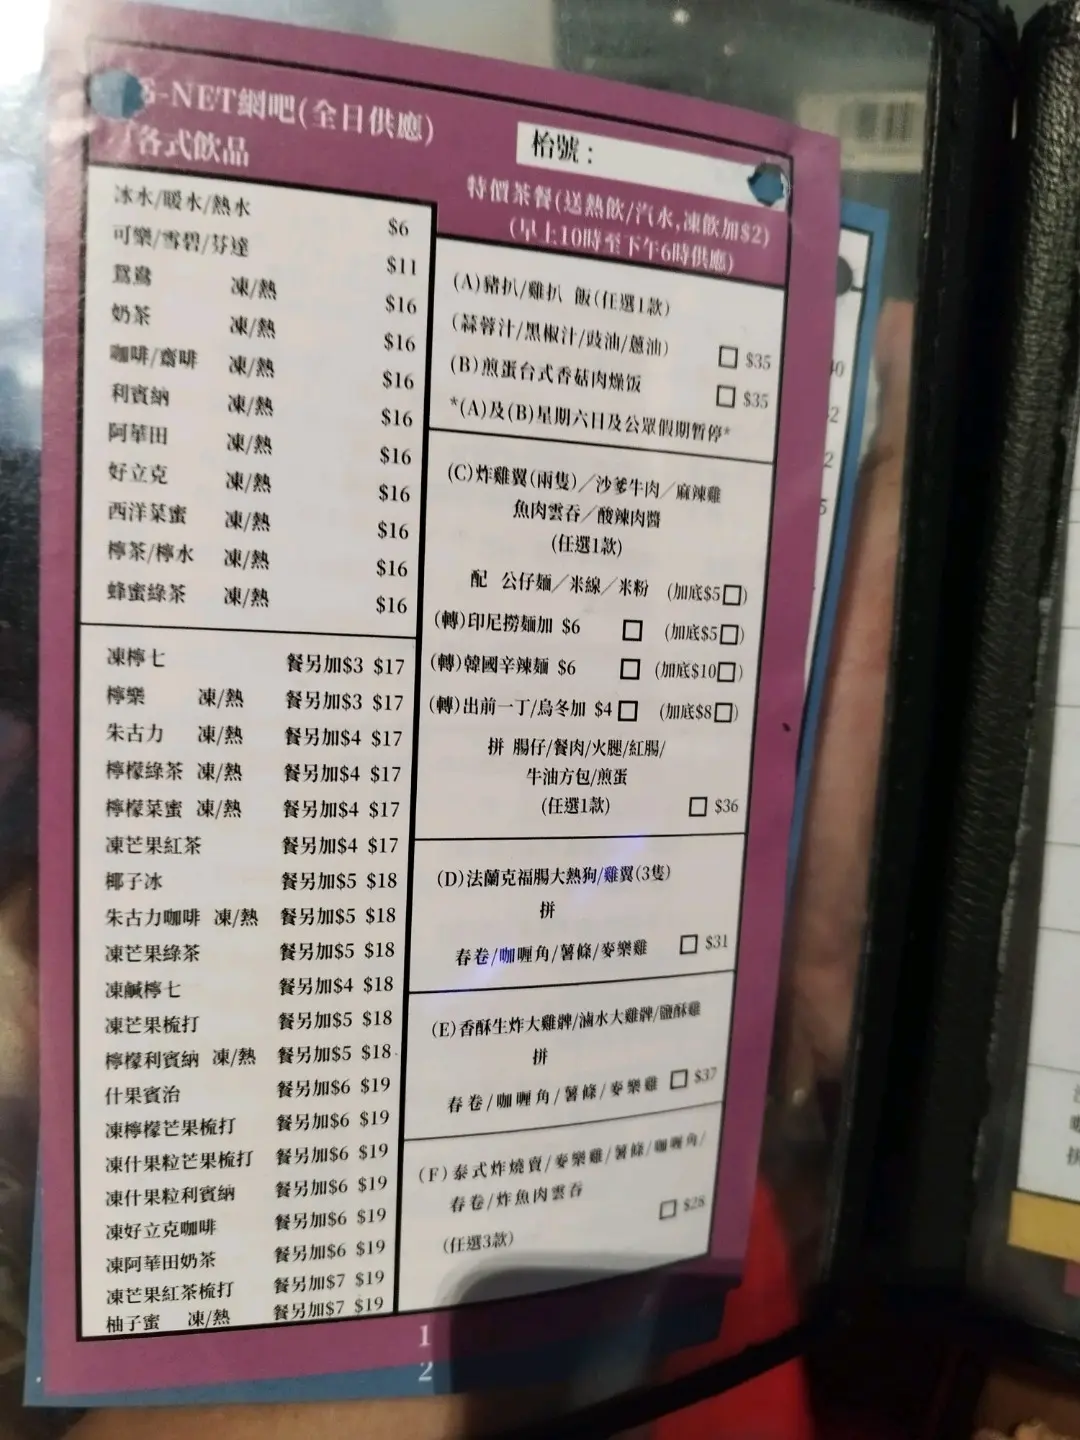 S-NET網吧(全日供應)
各式飲品
枱號：
特價茶餐(送熱飲/汽水,凍飲加$2)
(早上10時至下午6時供應)
冰水/暖水/熱水 $6
可樂/雪碧/芬達 $11
鴛鴦 凍/熱 $16
奶茶 凍/熱 $16
咖啡/齋啡 凍/熱 $16
利賓納 凍/熱 $16
阿華田 凍/熱 $16
好立克 凍/熱 $16
西洋菜蜜 凍/熱 $16
檸茶/檸水 凍/熱 $16
蜂蜜綠茶 凍/熱 $16
凍檸七 餐另加$3 $17
檸樂 凍/熱 餐另加$3 $17
朱古力 凍/熱 餐另加$4 $17
檸檬綠茶 凍/熱 餐另加$4 $17
檸檬菜蜜 凍/熱 餐另加$4 $17
凍芒果紅茶 餐另加$4 $17
椰子冰 餐另加$5 $18
朱古力咖啡 凍/熱 餐另加$5 $18
凍芒果綠茶 餐另加$5 $18
凍鹹檸七 餐另加$4 $18
凍芒果梳打 餐另加$5 $18
檸檬利賓納 凍/熱 餐另加$5 $18
什果賓治 餐另加$6 $19
凍檸檬芒果梳打 餐另加$6 $19
凍什果粒芒果梳打 餐另加$6 $19
凍什果粒利賓納 餐另加$6 $19
凍好立克咖啡 餐另加$6 $19
凍阿華田奶茶 餐另加$6 $19
凍芒果紅茶梳打 餐另加$7 $19
柚子蜜 凍/熱 餐另加$7 $19
(A)豬扒/雞扒 飯(任選1款)
(蒜蓉汁/黑椒汁/豉油/蔥油) □ $35
(B)煎蛋台式香菇肉燥饭 □ $35
*(A)及(B)星期六日及公眾假期暫停*
(C)炸雞翼(兩隻)／沙爹牛肉／麻辣雞
魚肉雲吞／酸辣肉醬
(任選1款)
配 公仔麵／米線／米粉 (加底$5□)
(轉)印尼撈麵加 $6 □ (加底$5□)
(轉)韓國辛辣麵 $6 □ (加底$10□)
(轉)出前一丁/烏冬加 $4 □ (加底$8□)
拼 腸仔/餐肉/火腿/紅腸/
牛油方包/煎蛋
(任選1款) □ $36
(D)法蘭克福腸大熱狗/雞翼(3隻)
拼
春卷/咖喱角/薯條/麥樂雞 □ $31
(E)香酥生炸大雞髀/滷水大雞髀/鹽酥雞
拼
春卷/咖喱角/薯條/麥樂雞 □ $37
(F)泰式炸燒賣/麥樂雞/薯條/咖喱角/
春卷/炸魚肉雲吞 □ $28
(任選3款)
1
2